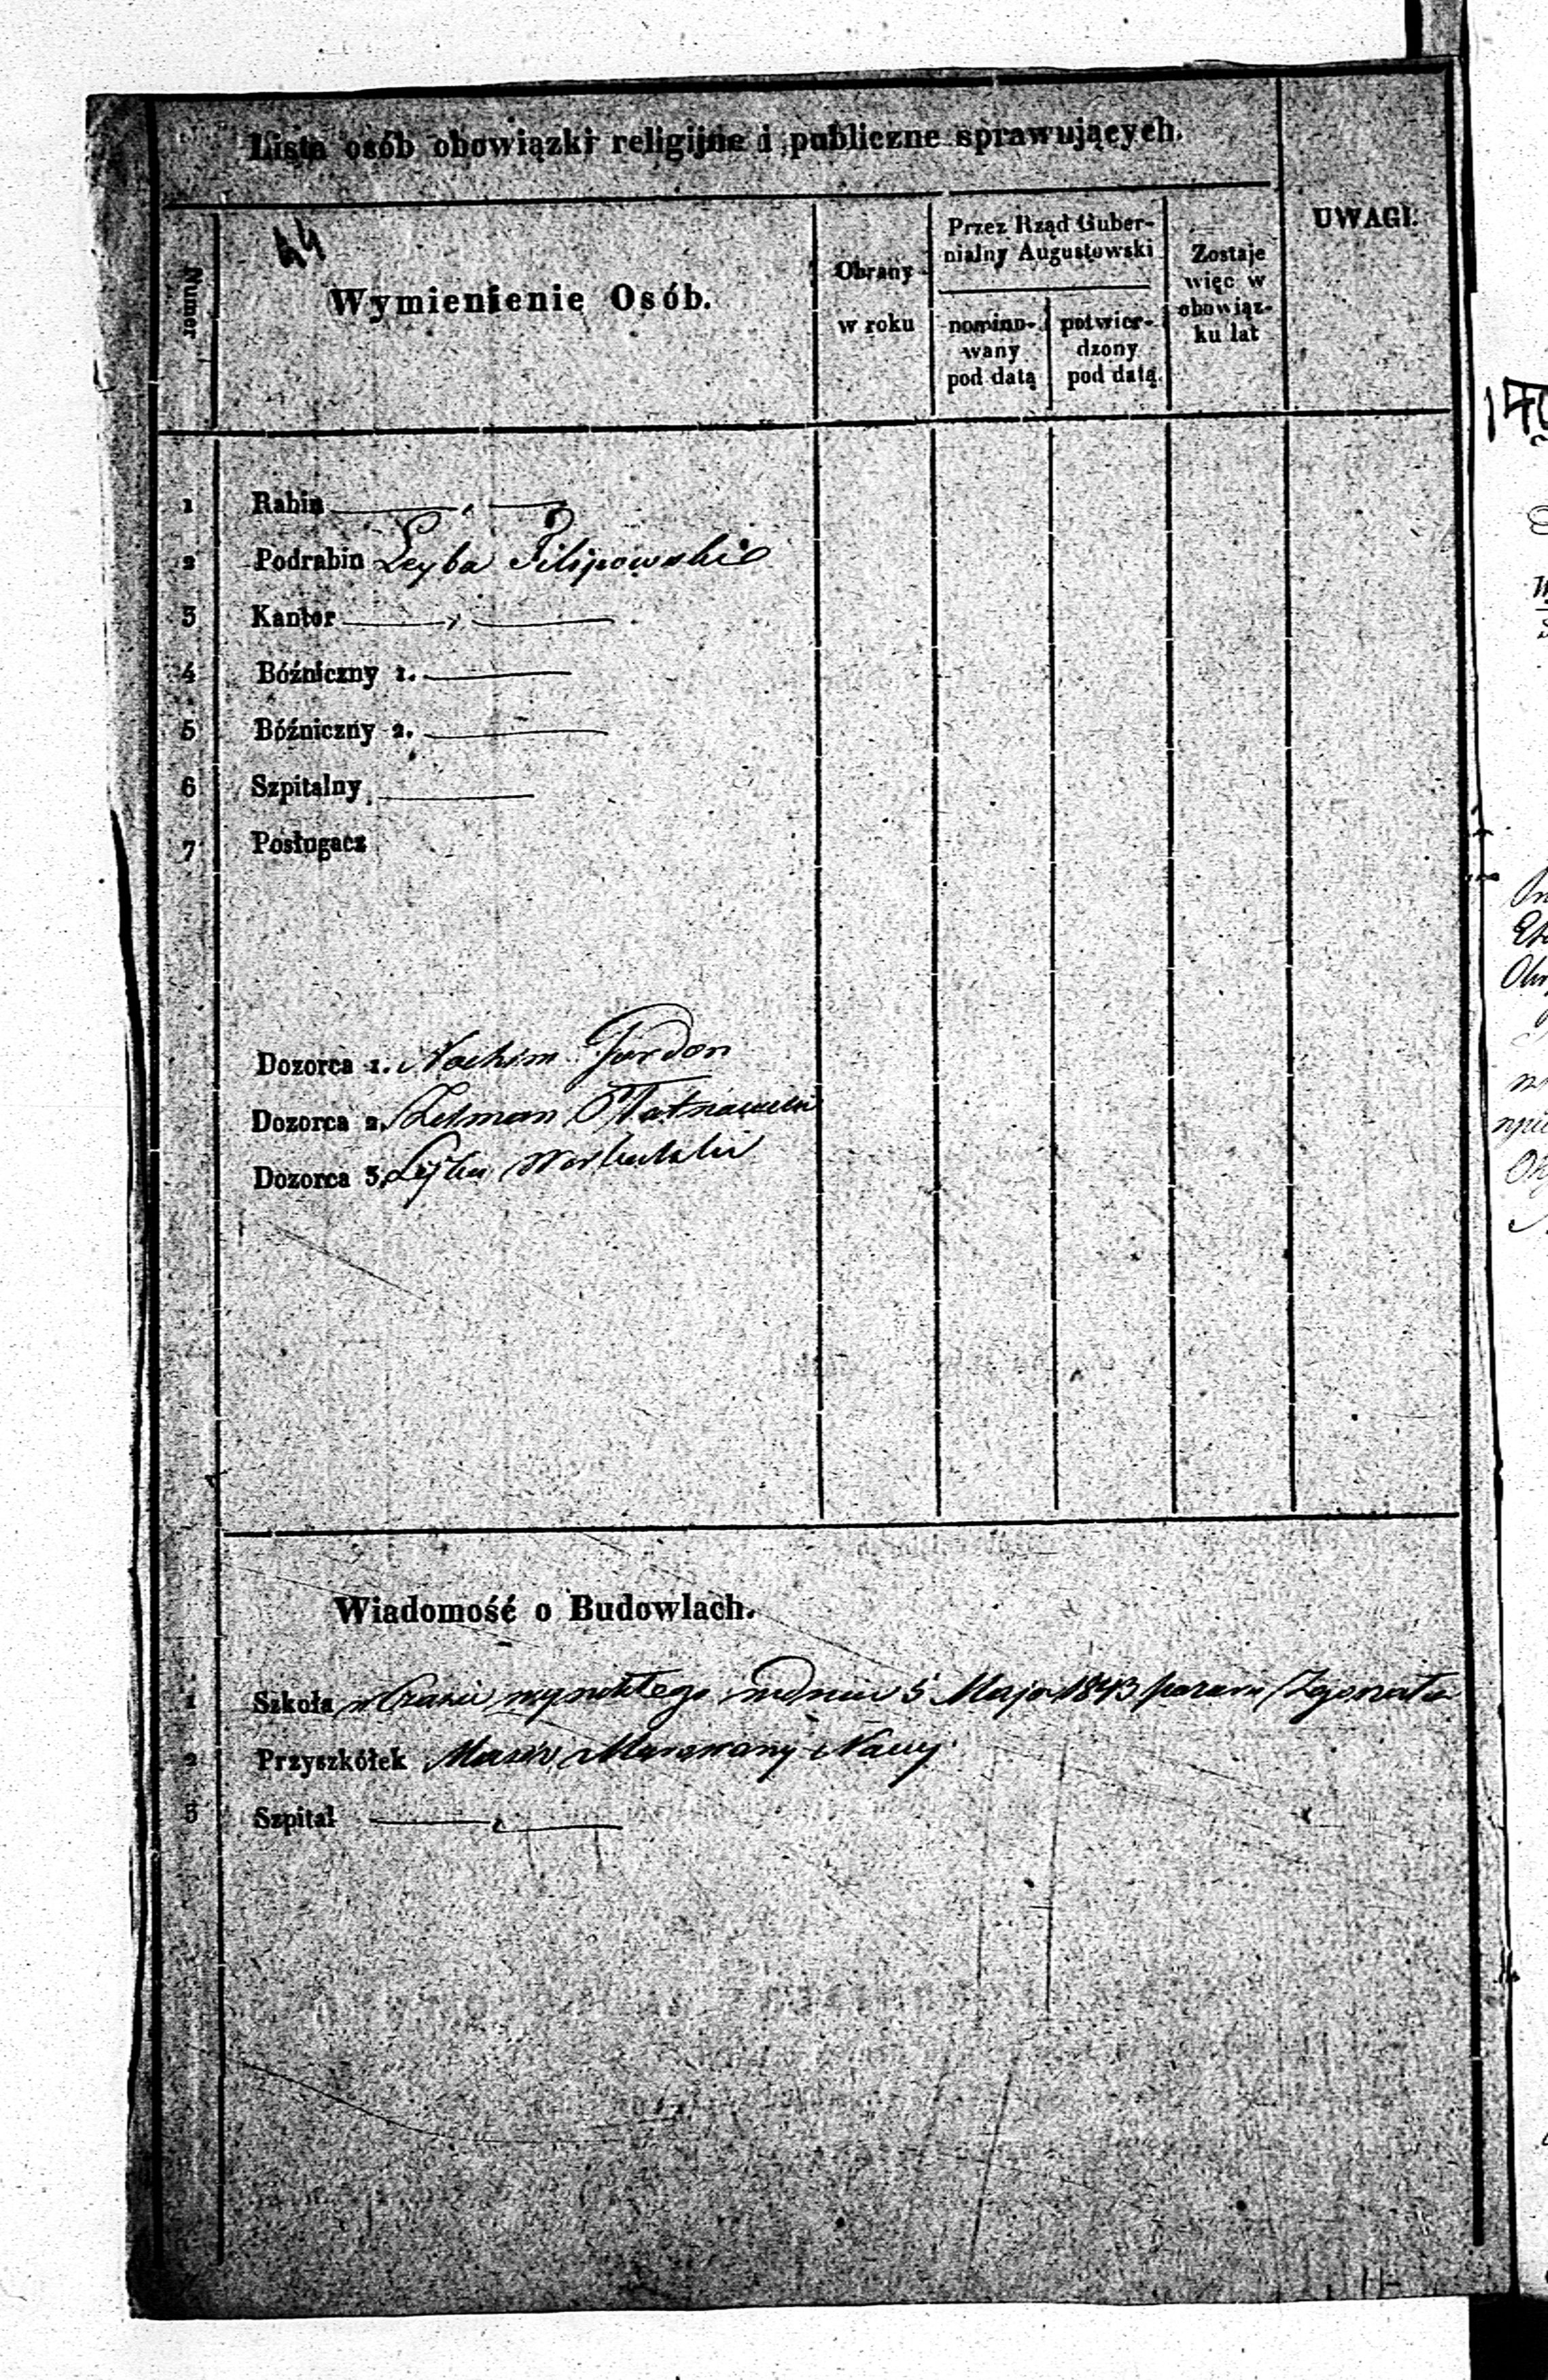 Lista osób obowiązki religijne i publiczne sprawujących.
44
Numer
Wymienienie Osób.
Obrany w roku
Przez Rząd Gubernialny Augustowski
nominowany pod datą
potwierdzony pod datą.
Zostaje więc w obowiązku lat
UWAGI.
1 Rabin
2 Podrabin Leyba Filipowski
3 Kantor
4 Bóźniczny 1.
5 Bóźniczny 2.
6 Szpitalny
7 Posługacz
Dozorca 1. Nochim Gordon
Dozorca 2. Zelman
Dozorca 3. Lejba
Wiadomość o Budowlach.
1 Szkoła w Czasie wynikłego w dniu 5 Maja 1843 pożaru Zgorzała
2 Przyszkółek Murowany Nowy
3 Szpital